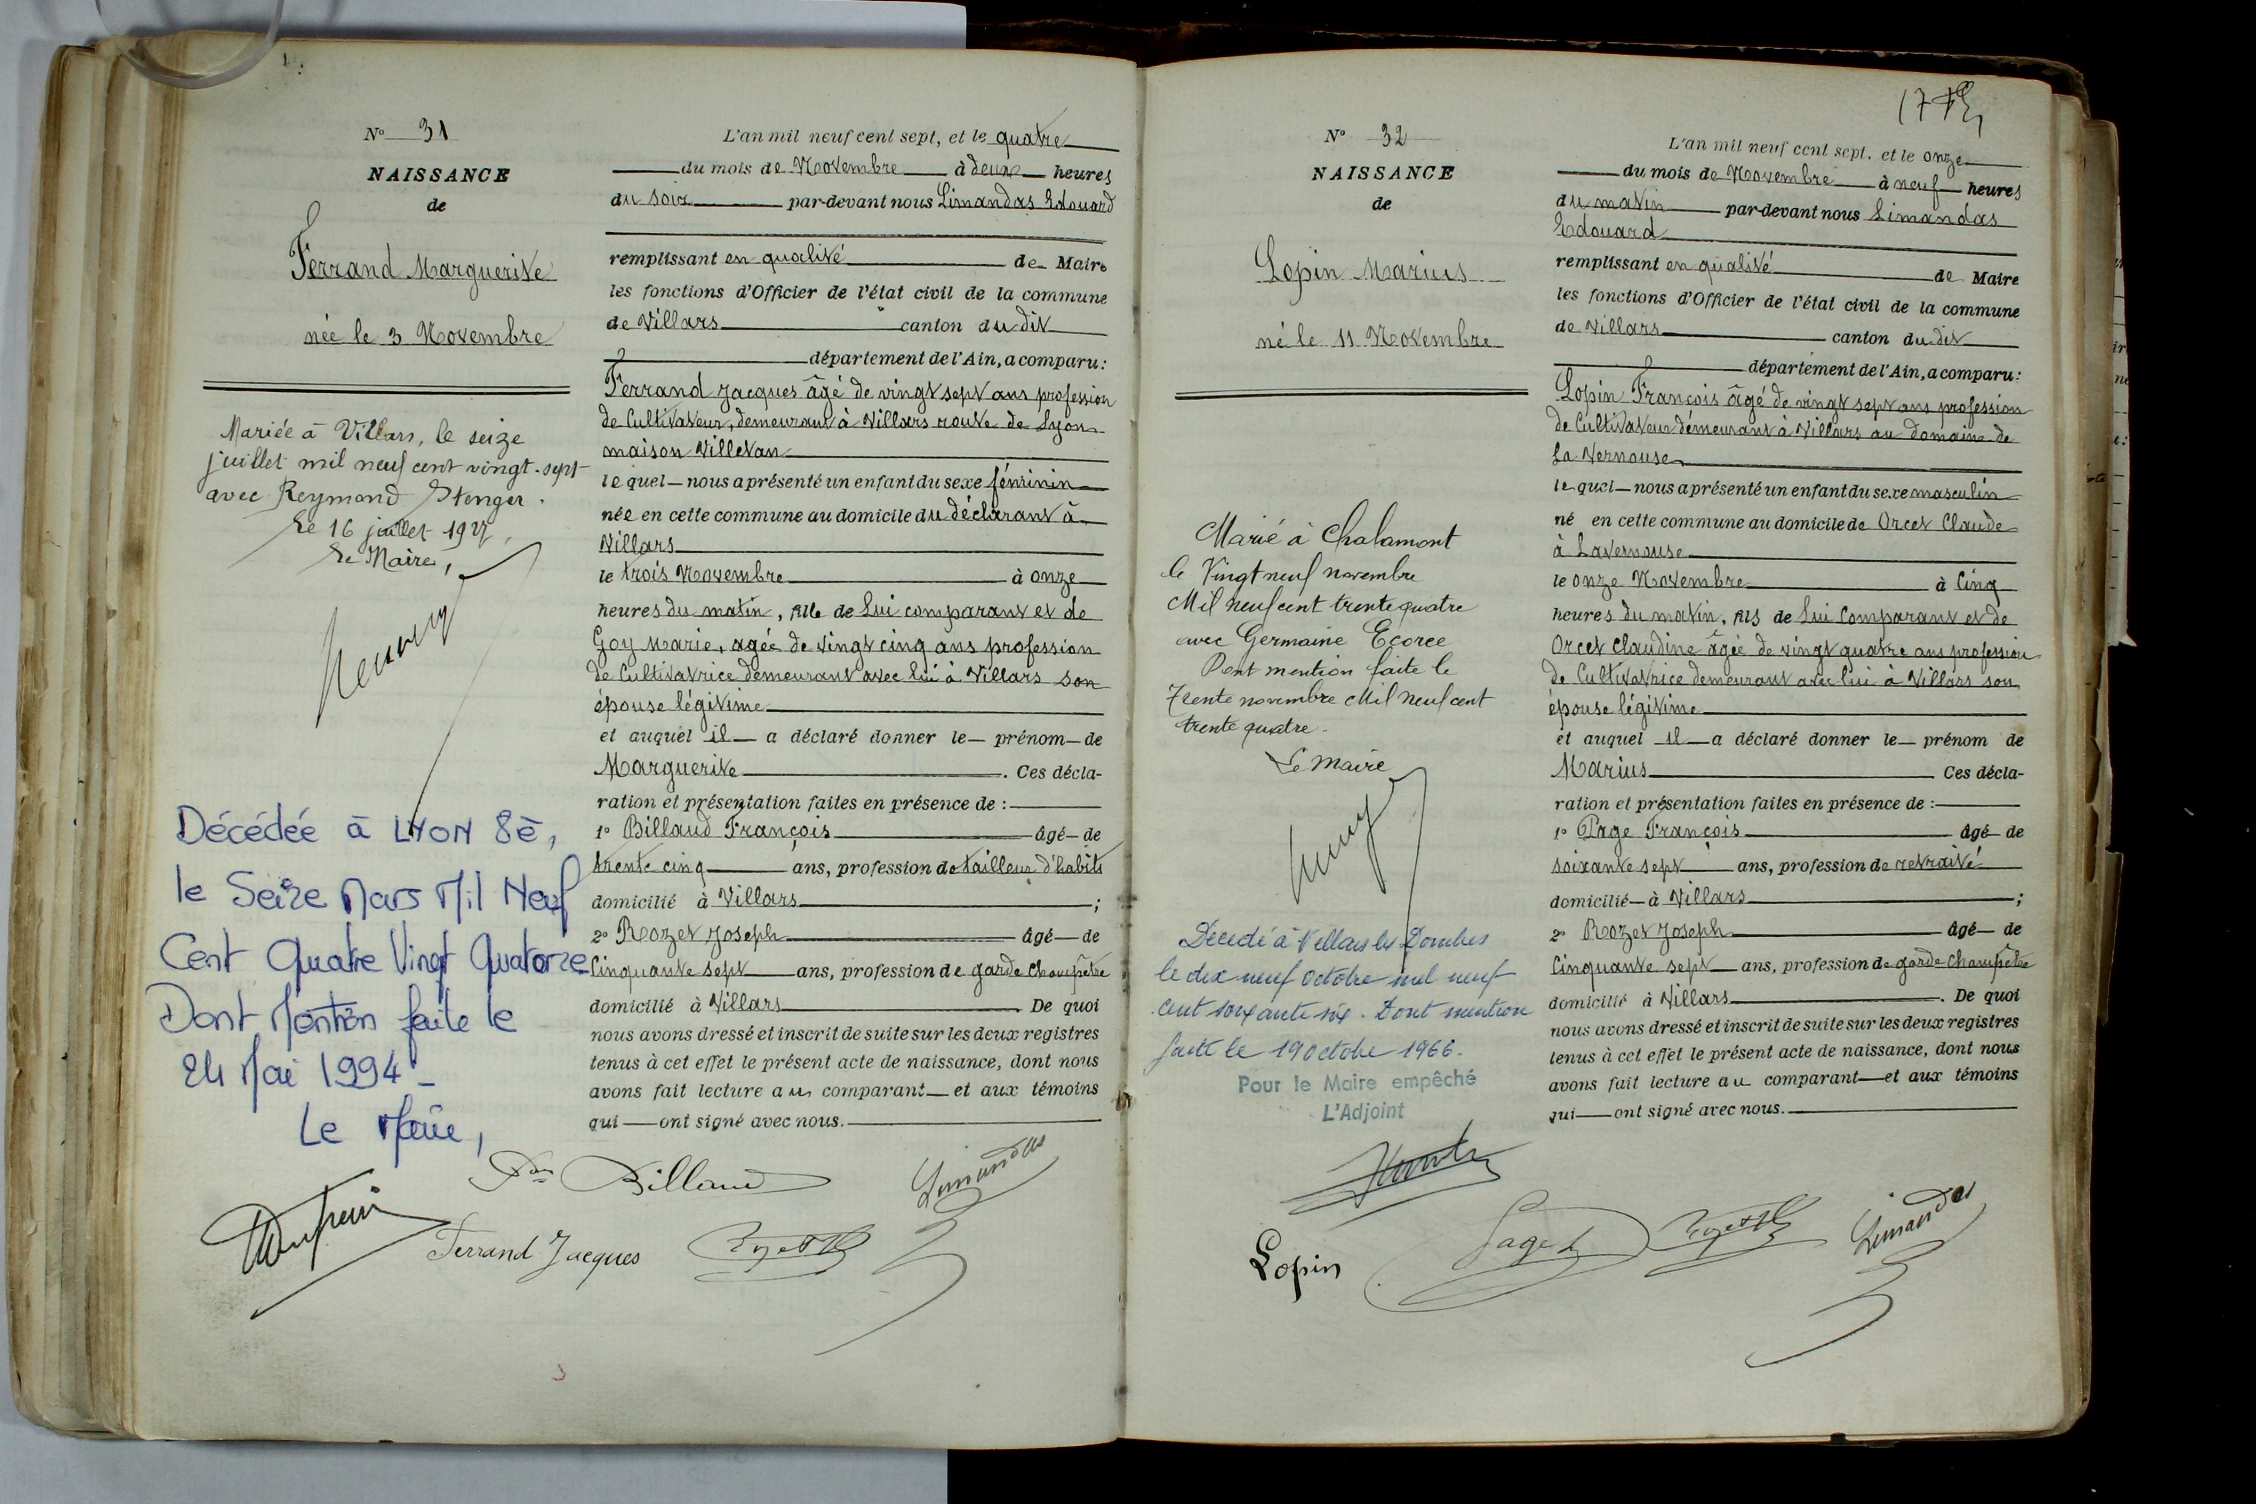 N° 31
NAISSANCE
de
Ferrand Marguerite
née le 3 Novembre
Mariée à Villars, le seize
juillet mil neuf cent vingt-sept
avec Reymond Stenger.
Le 16 juillet 1927,
Le Maire,
Décédée à LYON 8è,
le Seize Mars Mil Neuf
Cent Quatre Vingt Quatorze
Dont Mention faite le
24 Mai 1994 -
Le Maire,
L'an mil neuf cent sept, et le quatre
du mois de Novembre à deux heures
du soir par-devant nous Limandas Edouard
remplissant en qualité de Maire
les fonctions d'Officier de l'état civil de la commune
de Villars canton du dit
département de l'Ain, a comparu:
Ferrand Jacques âgé de vingt sept ans profession
de Cultivateur, demeurant à Villars route de Lyon
maison Villetan
le quel nous a présenté un enfant du sexe féminin
née en cette commune au domicile du déclarant à
Villars
le trois Novembre à onze
heures du matin, fille de Lui comparant et de
Goy Marie, agée de vingt cinq ans profession
de Cultivatrice demeurant avec lui à Villars son
épouse légitime
et auquel il a déclaré donner le prénom de
Marguerite. Ces décla-
ration et présentation faites en présence de :
1° Billaud François âgé de
trente cinq ans, profession de tailleur d'habits
domicilié à Villars ;
2° Rozet Joseph âgé de
Cinquante sept ans, profession de garde Champêtre
domicilié à Villars De quoi
nous avons dressé et inscrit de suite sur les deux registres
tenus à cet effet le présent acte de naissance, dont nous
avons fait lecture au comparant et aux témoins
qui ont signé avec nous.
Billaud
Limandas
Ferrand Jacques
Rozet
N° 32
NAISSANCE
de
Lopin Marius
né le 11 Novembre
Marié à Chalamont
le Vingt neuf novembre
Mil neuf cent trente quatre
avec Germaine Ecorce
Dont mention faite le
Trente novembre Mil neuf cent
trente quatre.
Le Maire
Décédé à Villars les Dombes
le dix neuf octobre mil neuf
cent soixante six. Dont mention
faite le 19 octobre 1966.
Pour le Maire empêché
L'Adjoint
L'an mil neuf cent sept. et le onze
du mois de Novembre à neuf heures
du matin par-devant nous Limandas
Edouard
remplissant en qualité de Maire
les fonctions d'Officier de l'état civil de la commune
de Villars canton du dit
département de l'Ain, a comparu:
Lopin François âgé de vingt sept ans profession
de Cultivateur démeurant à Villars au domaine de
La Vernouse
le quel nous a présenté un enfant du sexe masculin
né en cette commune au domicile de Orcet Claude
à Lavernouse
le onze Novembre à Cinq
heures du matin, fils de Lui Comparant et de
Orcet Claudine âgée de vingt quatre ans profession
de Cultivatrice demeurant avec lui à Villars son
épouse légitime
et auquel il a déclaré donner le prénom de
Marius Ces décla-
ration et présentation faites en présence de :
1° Page François âgé de
soixante sept ans, profession de retraité
domicilié à Villars ;
2° Rozet Joseph âgé de
Cinquante sept ans, profession de garde champêtre
domicilié à Villars. De quoi
nous avons dressé et inscrit de suite sur les deux registres
tenus à cet effet le présent acte de naissance, dont nous
avons fait lecture au comparant et aux témoins
qui ont signé avec nous.
Lopin
Page
Rozet
Limandas